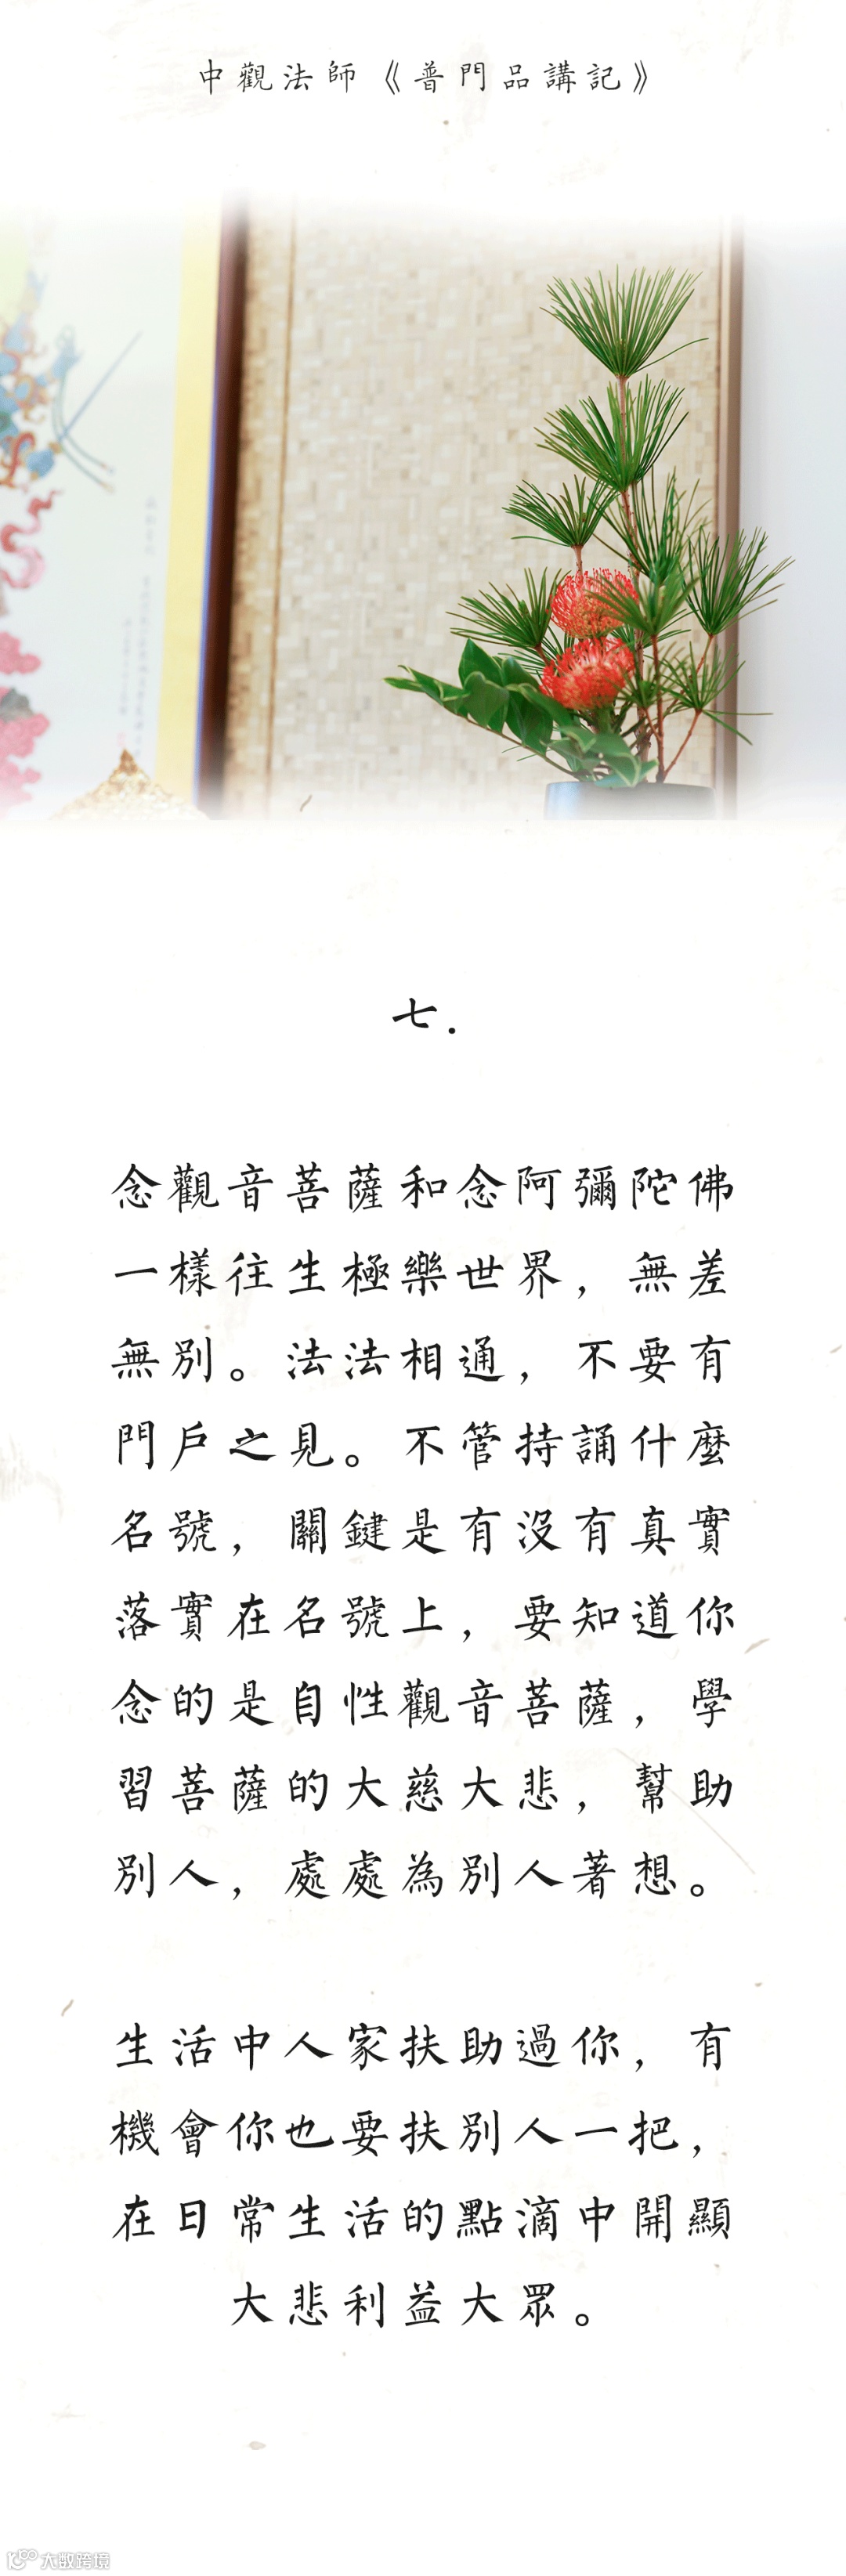 中觀法師《普門品講記》
七.
念觀音菩薩和念阿彌陀佛
一樣往生極樂世界，無差
無別。法法相通，不要有
門戶之見。不管持誦什麼
名號，關鍵是有沒有真實
落實在名號上，要知道你
念的是自性觀音菩薩，學
習菩薩的大慈大悲，幫助
別人，處處為別人著想。
生活中人家扶助過你，有
機會你也要扶別人一把，
在日常生活的點滴中開顯
大悲利益大眾。
大数跨境